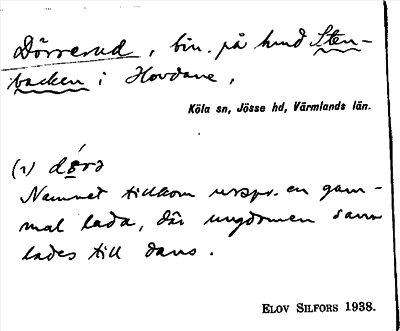 Dörrerud, bin. på hmd Sten-
backen i Hovdane,
Köla sn, Jösse hd, Värmlands län.
(1)
Namnet tillkom urspr. en gam-
mal lada, där ungdomen sam
lades till dans.
ELOV SILFORS 1938.